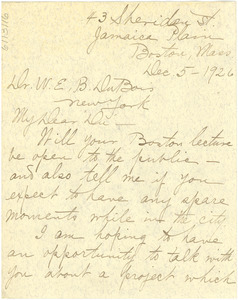 43 Sheridan St.
Jamaica Plain
Boston, Mass
Dec. 5 - 1926
Dr. W. E. B. DuBois
New York
My Dear Dr. -
Will your Boston lecture
be open to the public -
and also tell me if you
expect to have any spare
moments while in the city.
I am hoping to have
an opportunity to talk with
you about a project which